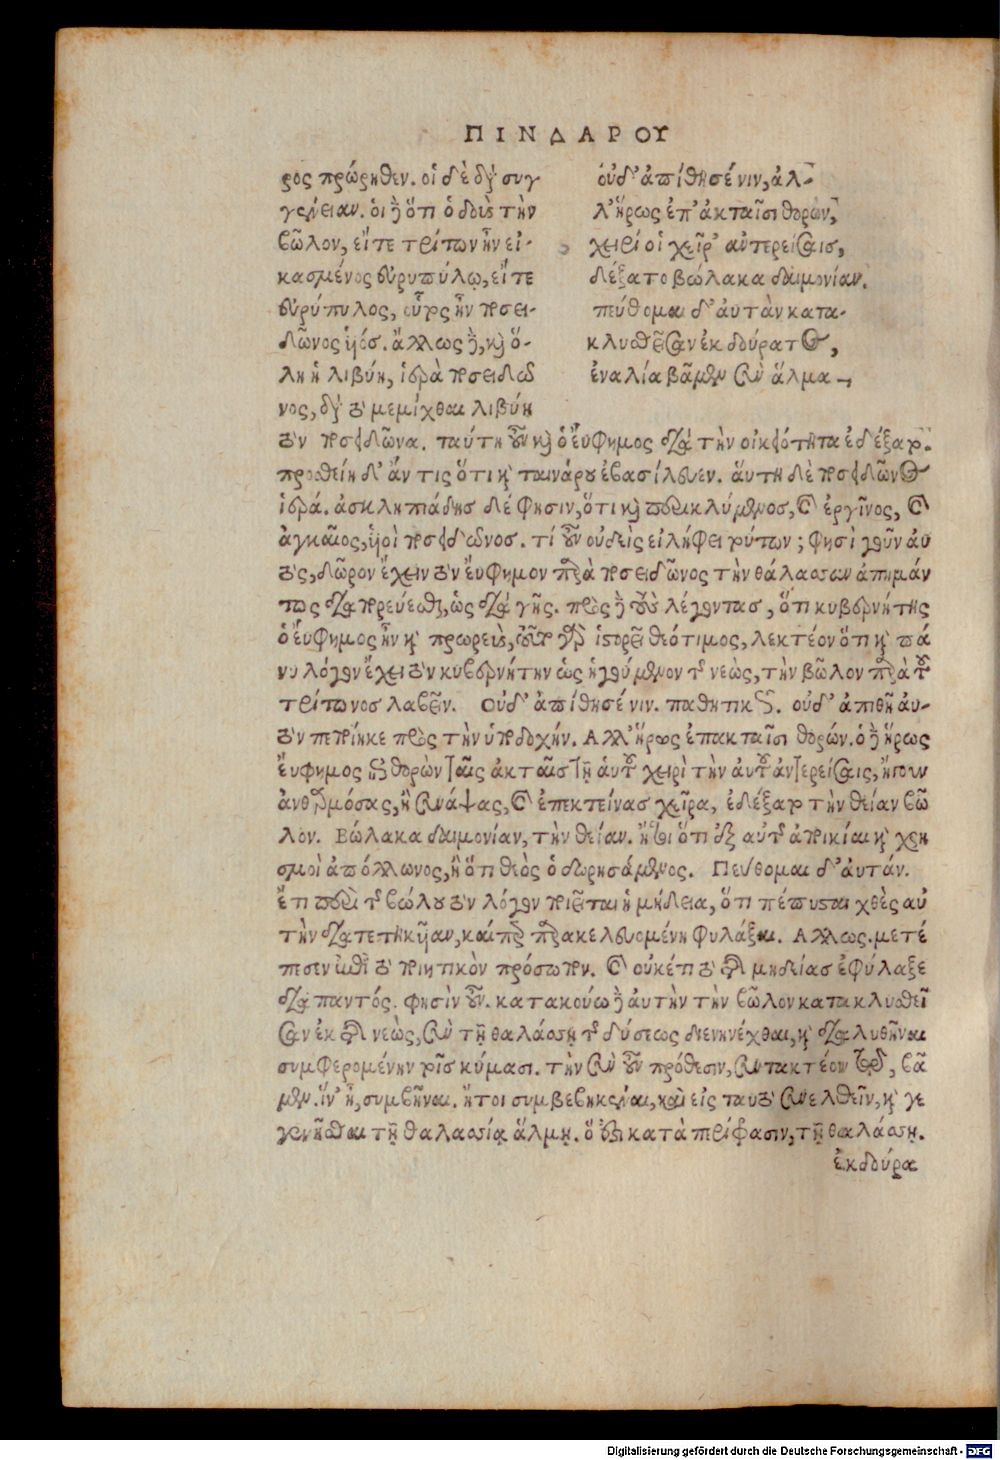 ΠΙΝΔΑΡΟΥ
ρος πρώρηθεν. οἱ δὲ διὰ συγ
γένειαν. οἱ δὲ ὅτι ὁ δοὺς τὴν
βῶλον, εἴτε τρίτων ἦν εἰ-
κασμένος εὐρυπύλῳ, εἴτε
εὐρύπυλος, οὗτος ἦν ποσει-
δῶνος υἱός. ἄλλως δὲ, καὶ ὅ-
λη ἡ λιβύη, ἱερὰ ποσειδῶ
νος, διὰ τὸ μεμίχθαι λιβύη
οὐδ' ἀπίθησέ νιν, ἀλ-
λ' ἥρως ἐπ' ἀκταῖσι θορών,
χειρί οἱ χεῖρ' ἀντερείσαις,
δέξατο βώλακα δαιμονίαν.
πεύθομαι δ' αὐτὰν κατα-
κλυσθεῖσαν ἐκ δούρατος,
ἐναλία βᾶμεν σὺν ἅλμα,
τὸν ποσειδῶνα. ταύτη οὖν καὶ ὁ εὔφημος διὰ τὴν οἰκειότητα ἐδέξατο.
προσθείη δ' ἄν τις ὅτι καὶ ταινάρου ἐβασίλευεν. αὕτη δὲ ποσειδῶνος
ἱερά. ἀσκληπιάδης δέ φησιν, ὅτι καὶ περικλύμενος, καὶ ἐργῖνος, καὶ
ἀγκαῖος, υἱοὶ ποσειδῶνος. τί οὖν οὐδεὶς εἰλήφει τούτων; φησὶ γοῦν αὐ
τὸς, δῶρον ἔχειν τὸν εὔφημον παρὰ ποσειδῶνος τὴν θάλασσαν ἀπημάν
τως διαπορεύεσθαι, ὡς διὰ γῆς. πρὸς δὲ τοὺς λέγοντας, ὅτι κυβερνήτης
ὁ εὔφημος ἦν καὶ πρωρεὺς, ὥσπερ γὰρ ἱστορεῖ θεότιμος, λεκτέον ὅτι καὶ πά
νυ λόγον ἔχει τὸν κυβερνήτην ὡς ἡγούμενον τῆς νεὼς, τὴν βῶλον παρὰ τοῦ
τρίτωνος λαβεῖν. Οὐδ' ἀπίθησέ νιν. παθητικῶς. οὐδ' ἀπιθῆ αὐ-
τὸν πεποίηκε πρὸς τὴν ὑποδοχήν. Αλλ' ἥρως ἐπακταῖσι θορών. ὁ δὲ ἥρως
εὔφημος θορὼν ταῖς ἀκταῖς τῇ αὑτοῦ χειρὶ τὴν αὐτοῦ ἀντερείσαις, ἤγουν
ἀνθαρμόσας, ἢ συνάψας, καὶ ἐπεκτείνας χεῖρα, ἐδέξατο τὴν θείαν βῶ
λον. Βώλακα δαιμονίαν, τὴν θείαν. ἤτοι ὅτι ἐξ αὐτῆς ἀποικίαι καὶ χρη
σμοὶ ἀπόλλωνος, ἢ ὅτι θεὸς ὁ δωρησάμενος. Πεύθομαι δ' αὐτάν.
ἔτι περὶ τῆς βώλου τὸν λόγον ποιεῖται ἡ μήδεια, ὅτι πέπυσται χθὲς αὐ
τὴν διατετηκῆαν, καίπερ παρακελευομένη φυλάξαι. Αλλως. μετέ
πεσεν ἐπὶ τὸ ποιητικὸν πρόσωπον. καὶ οὐκέτι τὸ τῆς μηδείας ἐφύλαξε
διὰ παντός. φησὶν οὖν. κατακούω δὲ αὐτὴν τὴν βῶλον κατακλυσθεῖ
σαν ἐκ τῆς νεὼς, σὺν τῇ θαλάσσῃ τῆς δύσεως διενηνέχθαι, καὶ διαλυθῆναι
συμφερομένην τοῖς κύμασι. τὴν σὺν οὖν πρόθεσιν, συντακτέον οὕτως, βᾶ
μεν. ἵν' ᾖ, συμβῆναι. ἤτοι συμβεβηκέναι, καὶ εἰς ταυτὸ συνελθεῖν, καὶ γε
γενῆσθαι τῇ θαλασσίᾳ ἅλμῃ. ὅ ἐστι κατὰ περίφρασιν, τῇ θαλάσσῃ.
ἐκ δούρα
Digitalisierung gefördert durch die Deutsche Forschungsgemeinschaft - DFG